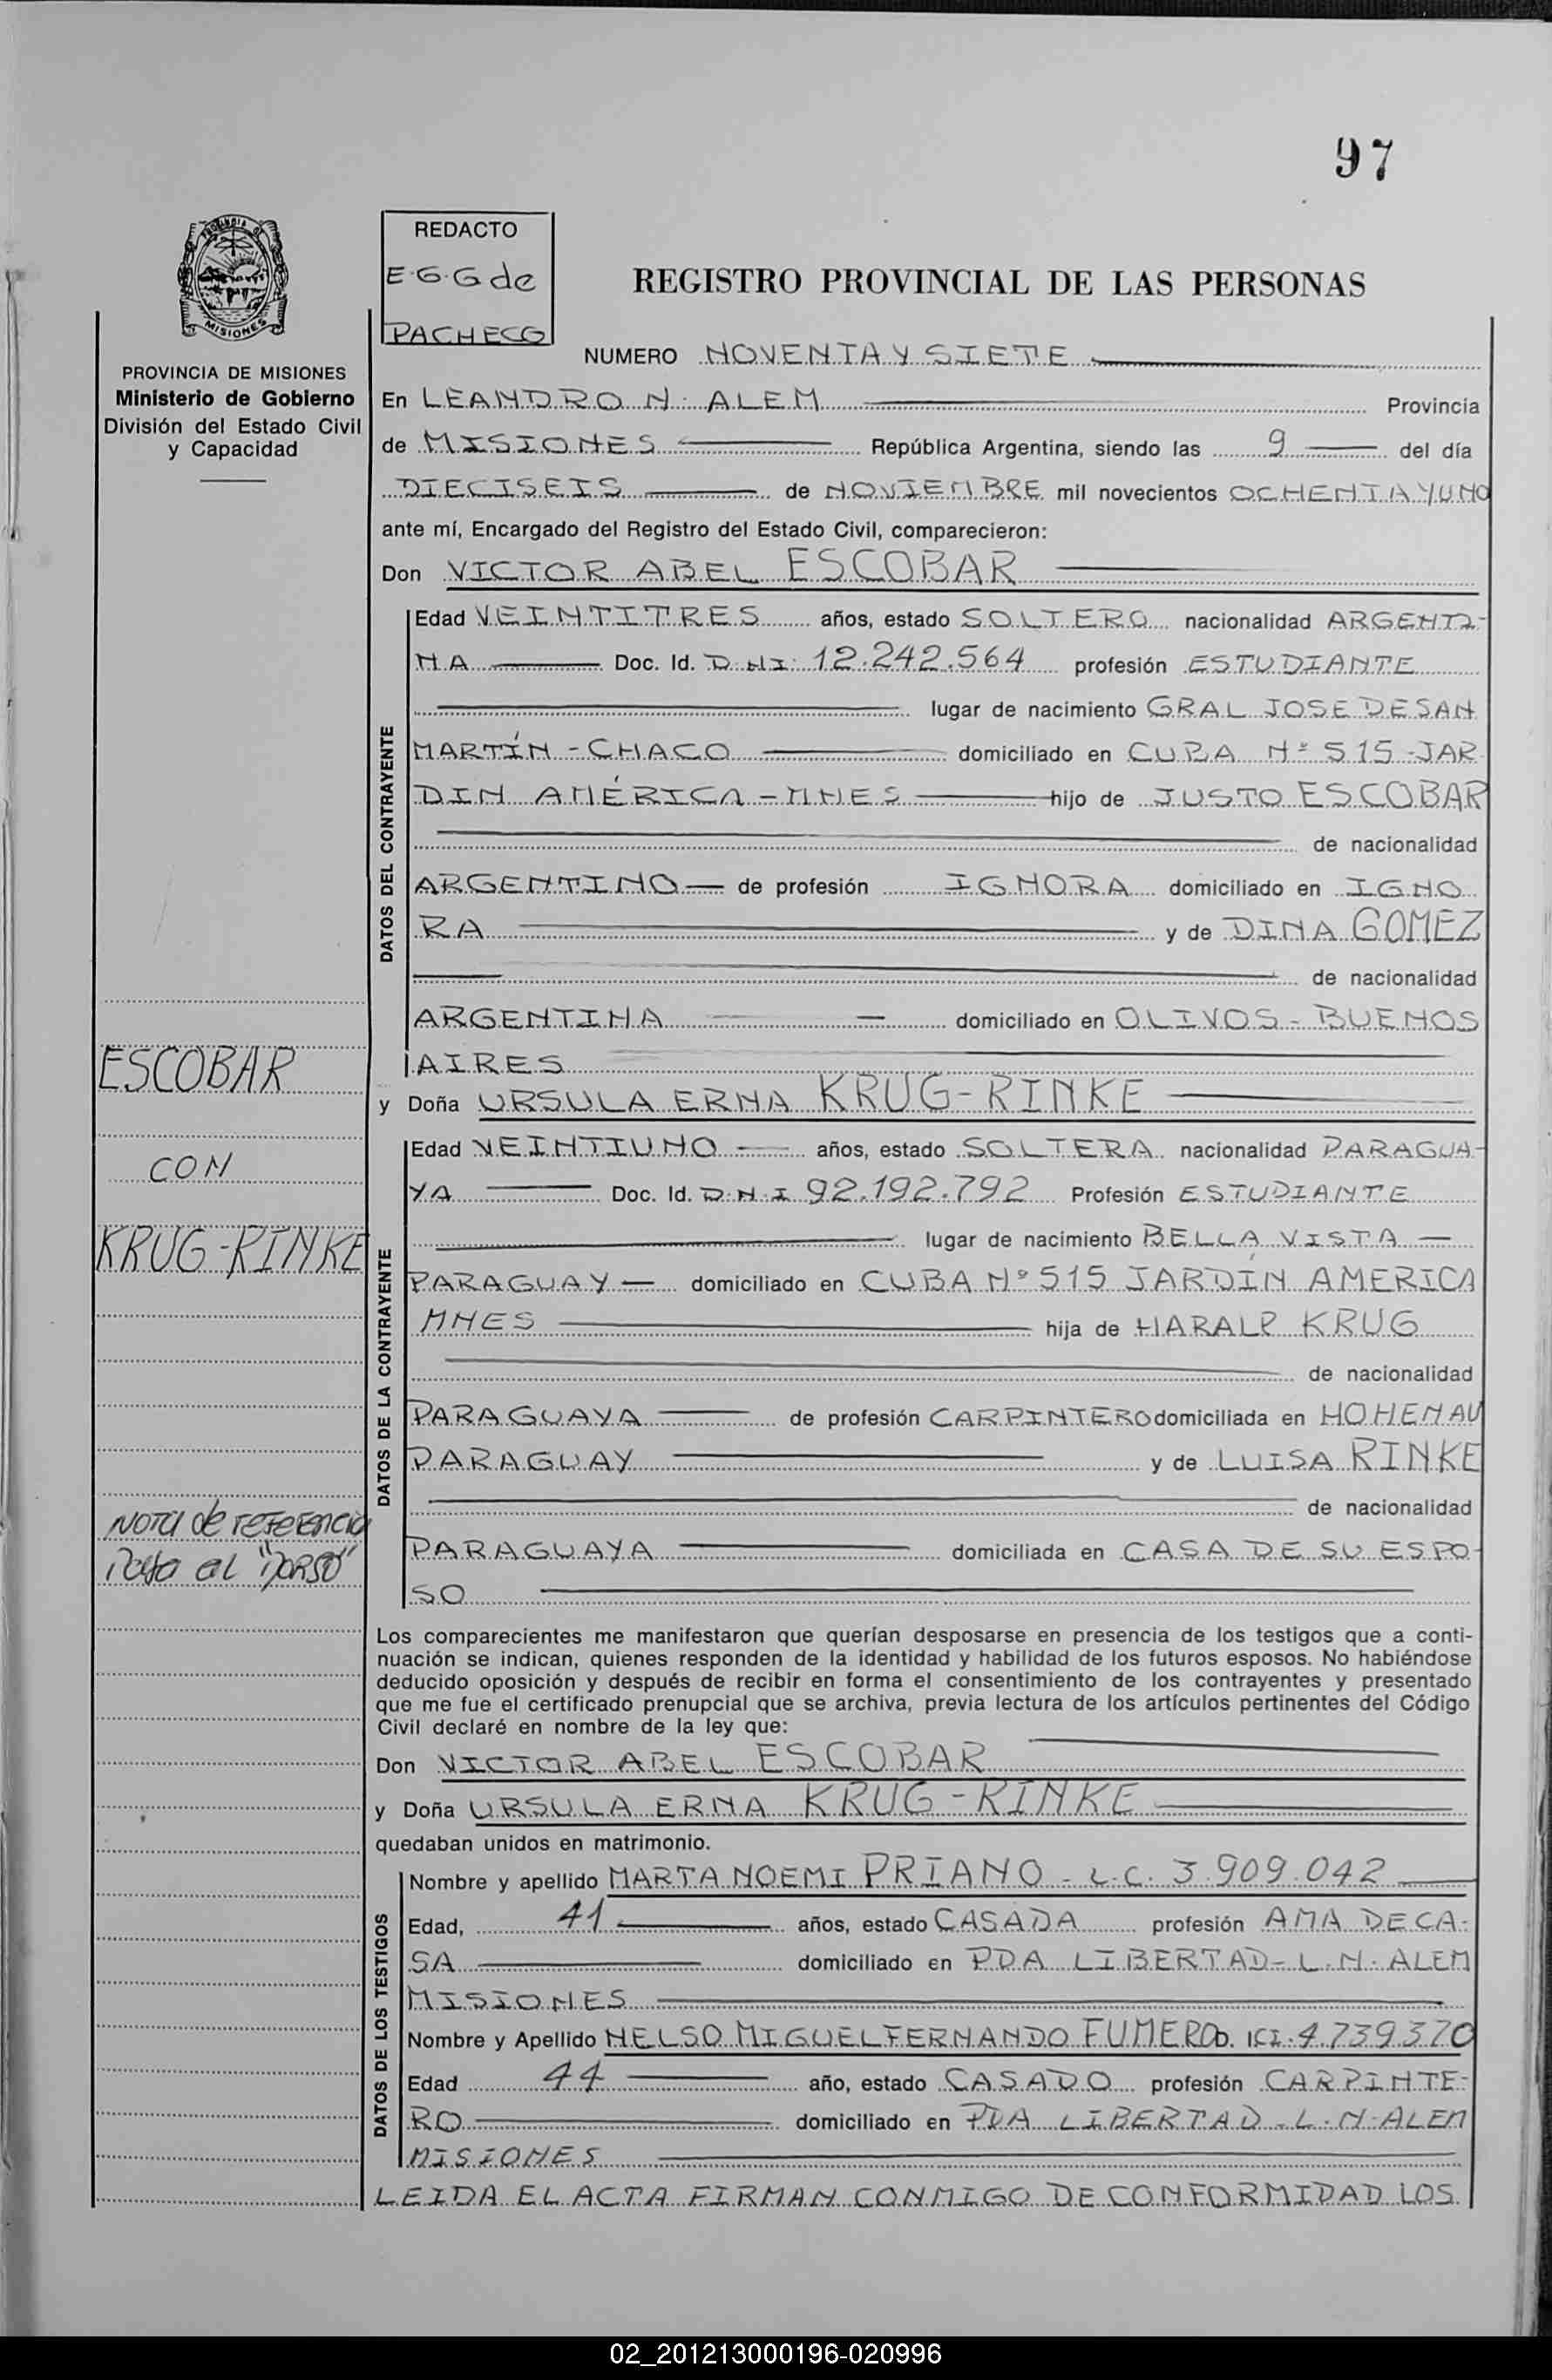 97
PROVINCIA DE MISIONES
PROVINCIA DE MISIONES
Ministerio de Gobierno
División del Estado Civil
y Capacidad
REDACTO
E.G.G de
PACHECO
REGISTRO PROVINCIAL DE LAS PERSONAS
NUMERO NOVENTA Y SIETE
En LEANDRO N. ALEM Provincia
de MISIONES República Argentina, siendo las 9 del día
DIECISEIS de NOVIEMBRE mil novecientos OCHENTA Y UNO
ante mí, Encargado del Registro del Estado Civil, comparecieron:
Don VICTOR ABEL ESCOBAR
DATOS DEL CONTRAYENTE
Edad VEINTITRES años, estado SOLTERO nacionalidad ARGENTI-
NA Doc. Id. D.N.I. 12.242.564 profesión ESTUDIANTE
lugar de nacimiento GRAL JOSE DE SAN
MARTÍN - CHACO domiciliado en CUBA Nº 515 - JAR
DIN AMÉRICA - MNES hijo de JUSTO ESCOBAR
de nacionalidad
ARGENTINO de profesión IGNORA domiciliado en IGNO
RA y de DINA GOMEZ
de nacionalidad
ARGENTINA domiciliado en OLIVOS - BUENOS
AIRES
y Doña URSULA ERNA KRUG-RINKE
DATOS DE LA CONTRAYENTE
Edad VEINTIUNO años, estado SOLTERA nacionalidad PARAGUA-
YA Doc. Id. D.N.I 92.192.792 Profesión ESTUDIANTE
lugar de nacimiento BELLA VISTA
PARAGUAY domiciliado en CUBA Nº 515 JARDÍN AMERICA
MNES hija de HARALD KRUG
de nacionalidad
PARAGUAYA de profesión CARPINTERO domiciliada en HOHENAU
PARAGUAY y de LUISA RINKE
de nacionalidad
PARAGUAYA domiciliada en CASA DE SU ESPO-
SO
ESCOBAR
CON
KRUG-RINKE
NOTA de referencia
Pasa al "DORSO"
Los comparecientes me manifestaron que querían desposarse en presencia de los testigos que a conti-
nuación se indican, quienes responden de la identidad y habilidad de los futuros esposos. No habiéndose
deducido oposición y después de recibir en forma el consentimiento de los contrayentes y presentado
que me fue el certificado prenupcial que se archiva, previa lectura de los artículos pertinentes del Código
Civil declaré en nombre de la ley que:
Don VICTOR ABEL ESCOBAR
y Doña URSULA ERNA KRUG-RINKE
quedaban unidos en matrimonio.
DATOS DE LOS TESTIGOS
Nombre y apellido MARTA NOEMI PRIANO - L.C. 3.909.042
Edad, 41 años, estado CASADA profesión AMA DE CA-
SA domiciliado en PDA LIBERTAD - L.N. ALEM
MISIONES
Nombre y Apellido NELSO MIGUEL FERNANDO FUMERO 4.739.370
Edad 44 año, estado CASADO profesión CARPINTE-
RO domiciliado en PDA LIBERTAD - L.N. ALEM
MISIONES
LEIDA EL ACTA FIRMAN CONMIGO DE CONFORMIDAD LOS
02_201213000196-020996